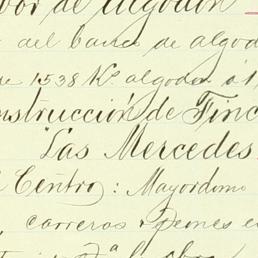 bor de algodón
del banco de algod
e 1538 Ks. algodon á 1
nstrucción de Finc
"Las Mercedes
Centro: Mayordomo
carreros peones e